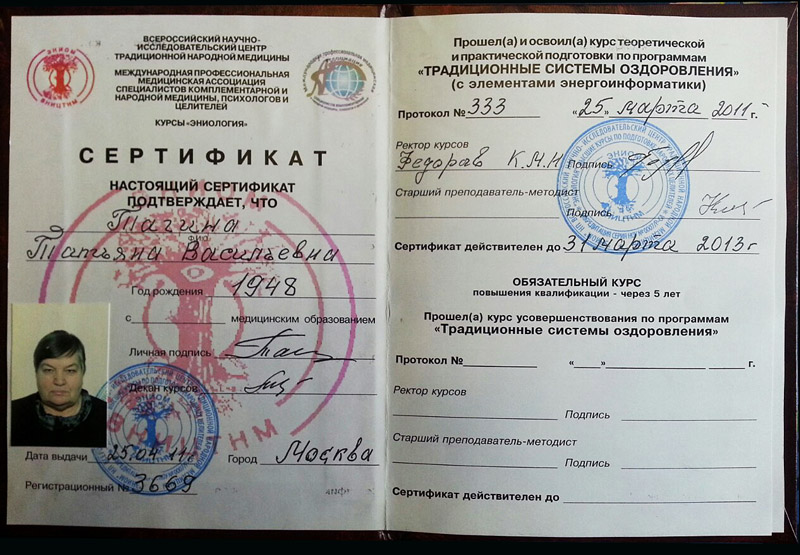 ВСЕРОССИЙСКИЙ НАУЧНО-
ИССЛЕДОВАТЕЛЬСКИЙ ЦЕНТР
ТРАДИЦИОННОЙ НАРОДНОЙ МЕДИЦИНЫ
МЕЖДУНАРОДНАЯ ПРОФЕССИОНАЛЬНАЯ
МЕДИЦИНСКАЯ АССОЦИАЦИЯ
СПЕЦИАЛИСТОВ КОМПЛЕМЕНТАРНОЙ И
НАРОДНОЙ МЕДИЦИНЫ, ПСИХОЛОГОВ И
ЦЕЛИТЕЛЕЙ
КУРСЫ «ЭНИОЛОГИЯ»
ЭНИОМ
ВНИЦТНМ
СЕРТИФИКАТ
НАСТОЯЩИЙ СЕРТИФИКАТ
ПОДТВЕРЖДАЕТ, ЧТО
Тагина
ФИО
Татьяна Васильевна
Год рождения 1948
с медицинским образованием
Личная подпись
Декан курсов
Дата выдачи 25.04.11 г.
Город Москва
Регистрационный № 3669
Прошел(а) и освоил(а) курс теоретической
и практической подготовки по программам
«ТРАДИЦИОННЫЕ СИСТЕМЫ ОЗДОРОВЛЕНИЯ»
(с элементами энергоинформатики)
Протокол № 333 «25» марта 2011 г.
Ректор курсов
Федорав К.М.Н Подпись
Старший преподаватель-методист
Подпись
Сертификат действителен до 31 марта 2013 г.
ОБЯЗАТЕЛЬНЫЙ КУРС
повышения квалификации - через 5 лет
Прошел(а) курс усовершенствования по программам
"Традиционные системы оздоровления»
Протокол № «__» г.
Ректор курсов
Подпись
Старший преподаватель-методист
Подпись
Сертификат действителен до